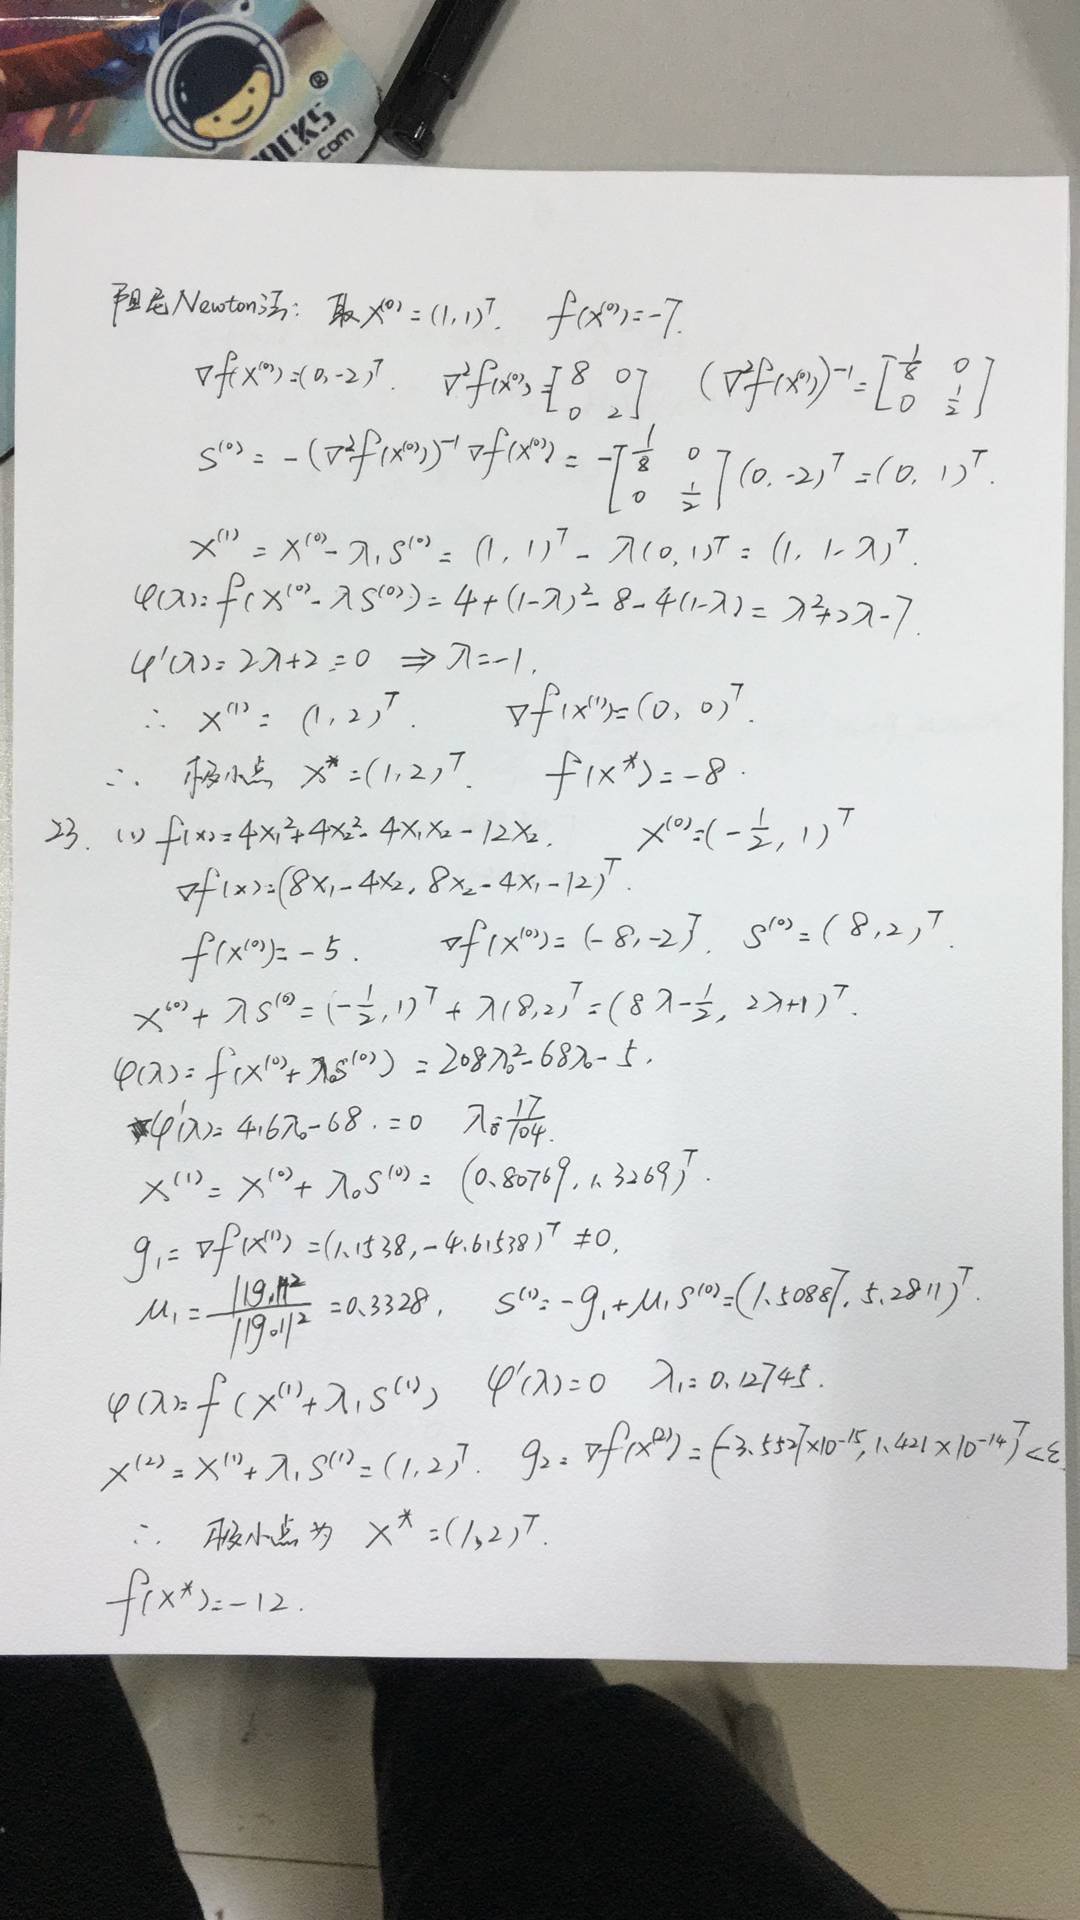 ®
OCKS
.com
阻尼Newton法: 取 X⁽⁰⁾=(1,1)ᵀ. f(X⁽⁰⁾)=-7.
∇f(X⁽⁰⁾)=(0,-2)ᵀ. ∇²f(X⁽⁰⁾)=[8 0; 0 2] (∇²f(X⁽⁰⁾))⁻¹=[1/8 0; 0 1/2]
S⁽⁰⁾ = -(∇²f(X⁽⁰⁾))⁻¹∇f(X⁽⁰⁾) = -[1/8 0; 0 1/2](0,-2)ᵀ=(0,1)ᵀ.
X⁽¹⁾ = X⁽⁰⁾-λ₁S⁽⁰⁾ = (1,1)ᵀ-λ(0,1)ᵀ = (1,1-λ)ᵀ.
φ(λ)=f(X⁽⁰⁾-λS⁽⁰⁾)=4+(1-λ)²-8-4(1-λ)=λ²+2λ-7.
φ'(λ)=2λ+2=0 ⇒ λ=-1.
∴ X⁽¹⁾= (1,2)ᵀ. ∇f(X⁽¹⁾)=(0,0)ᵀ.
∴ 极小点 X*=(1,2)ᵀ. f(X*)=-8.
23. (1) f(x)=4X₁²+4X₂²-4X₁X₂-12X₂. X⁽⁰⁾=(-1/2,1)ᵀ
∇f(x)=(8X₁-4X₂,8X₂-4X₁-12)ᵀ.
f(X⁽⁰⁾)=-5. ∇f(X⁽⁰⁾)=(-8,-2)ᵀ. S⁽⁰⁾=(8,2)ᵀ.
X⁽⁰⁾+λS⁽⁰⁾=(-1/2,1)ᵀ+λ(8,2)ᵀ=(8λ-1/2, 2λ+1)ᵀ.
φ(λ)=f(X⁽⁰⁾+λ₀S⁽⁰⁾)=208λ₀²-68λ₀-5.
φ'(λ)=416λ₀-68.=0 λ₀=17/104.
X⁽¹⁾=X⁽⁰⁾+λ₀S⁽⁰⁾=(0.80769,1.3269)ᵀ.
g₁=∇f(X⁽¹⁾)=(1.1538,-4.61538)ᵀ≠0.
μ₁=||g₁||²/||g₀||²=0.3328, S⁽¹⁾=-g₁+μ₁S⁽⁰⁾=(1.50887,5.2811)ᵀ.
φ(λ)=f(X⁽¹⁾+λ₁S⁽¹⁾) φ'(λ)=0 λ₁=0.12745.
X⁽²⁾=X⁽¹⁾+λ₁S⁽¹⁾=(1,2)ᵀ. g₂=∇f(X⁽²⁾)=(-3.5527×10⁻¹⁵,1.421×10⁻¹⁴)ᵀ<ε.
∴ 极小点为 X*=(1,2)ᵀ.
f(X*)=-12.